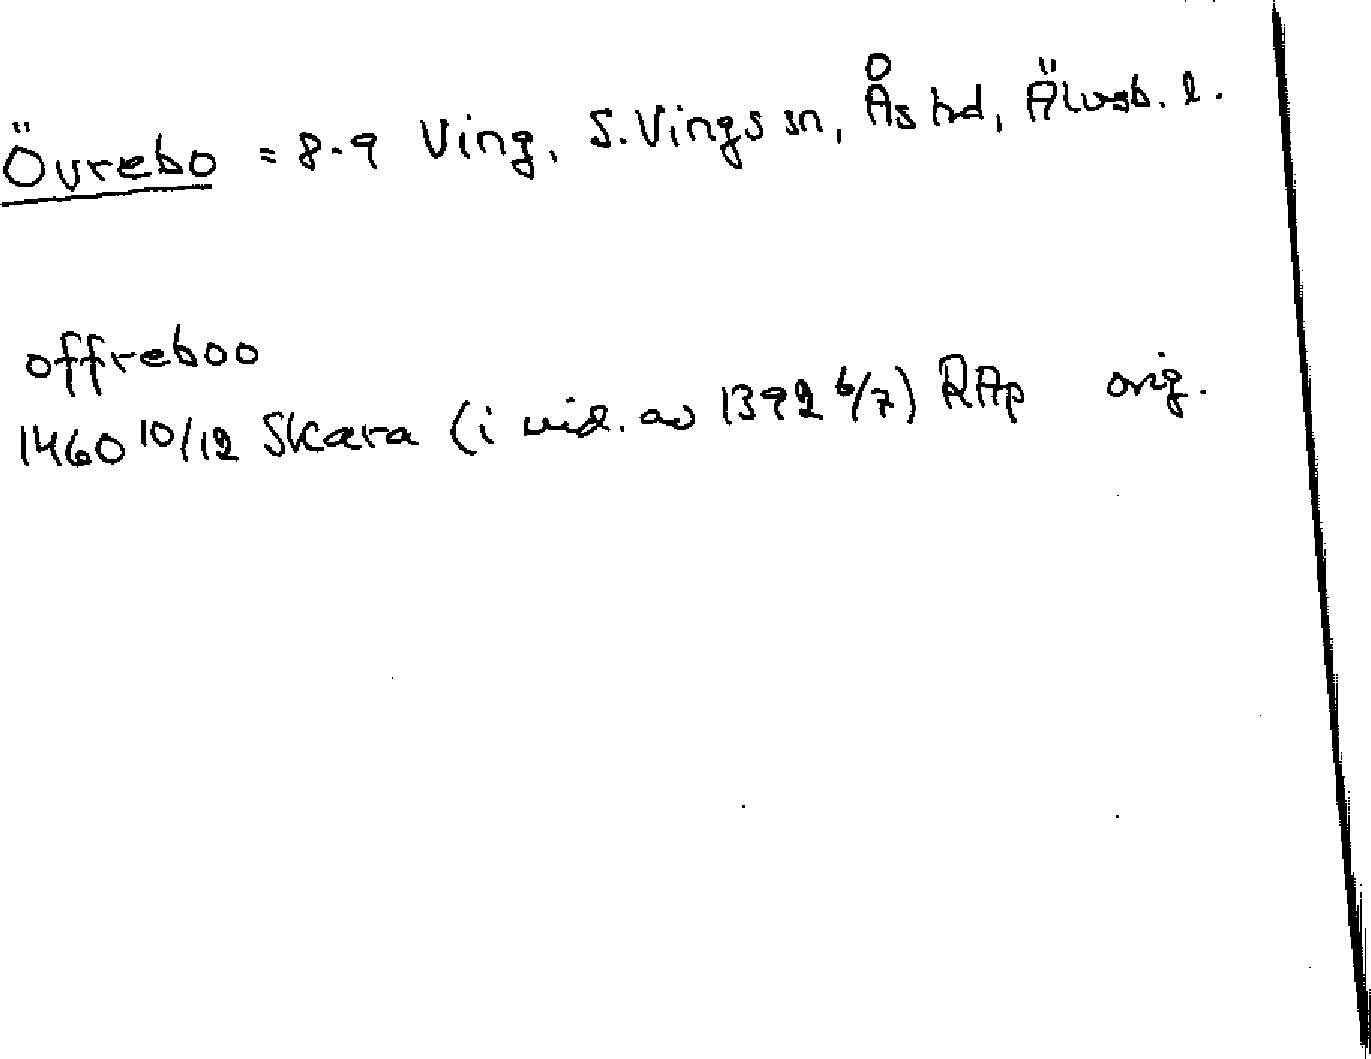 Övrebo = 8-9 Ving, S. Vings sn, Ås hd, Älvsb. l.
offreboo
1460 10/12 Skara (i vid. av 1392 6/7) RAp orig.